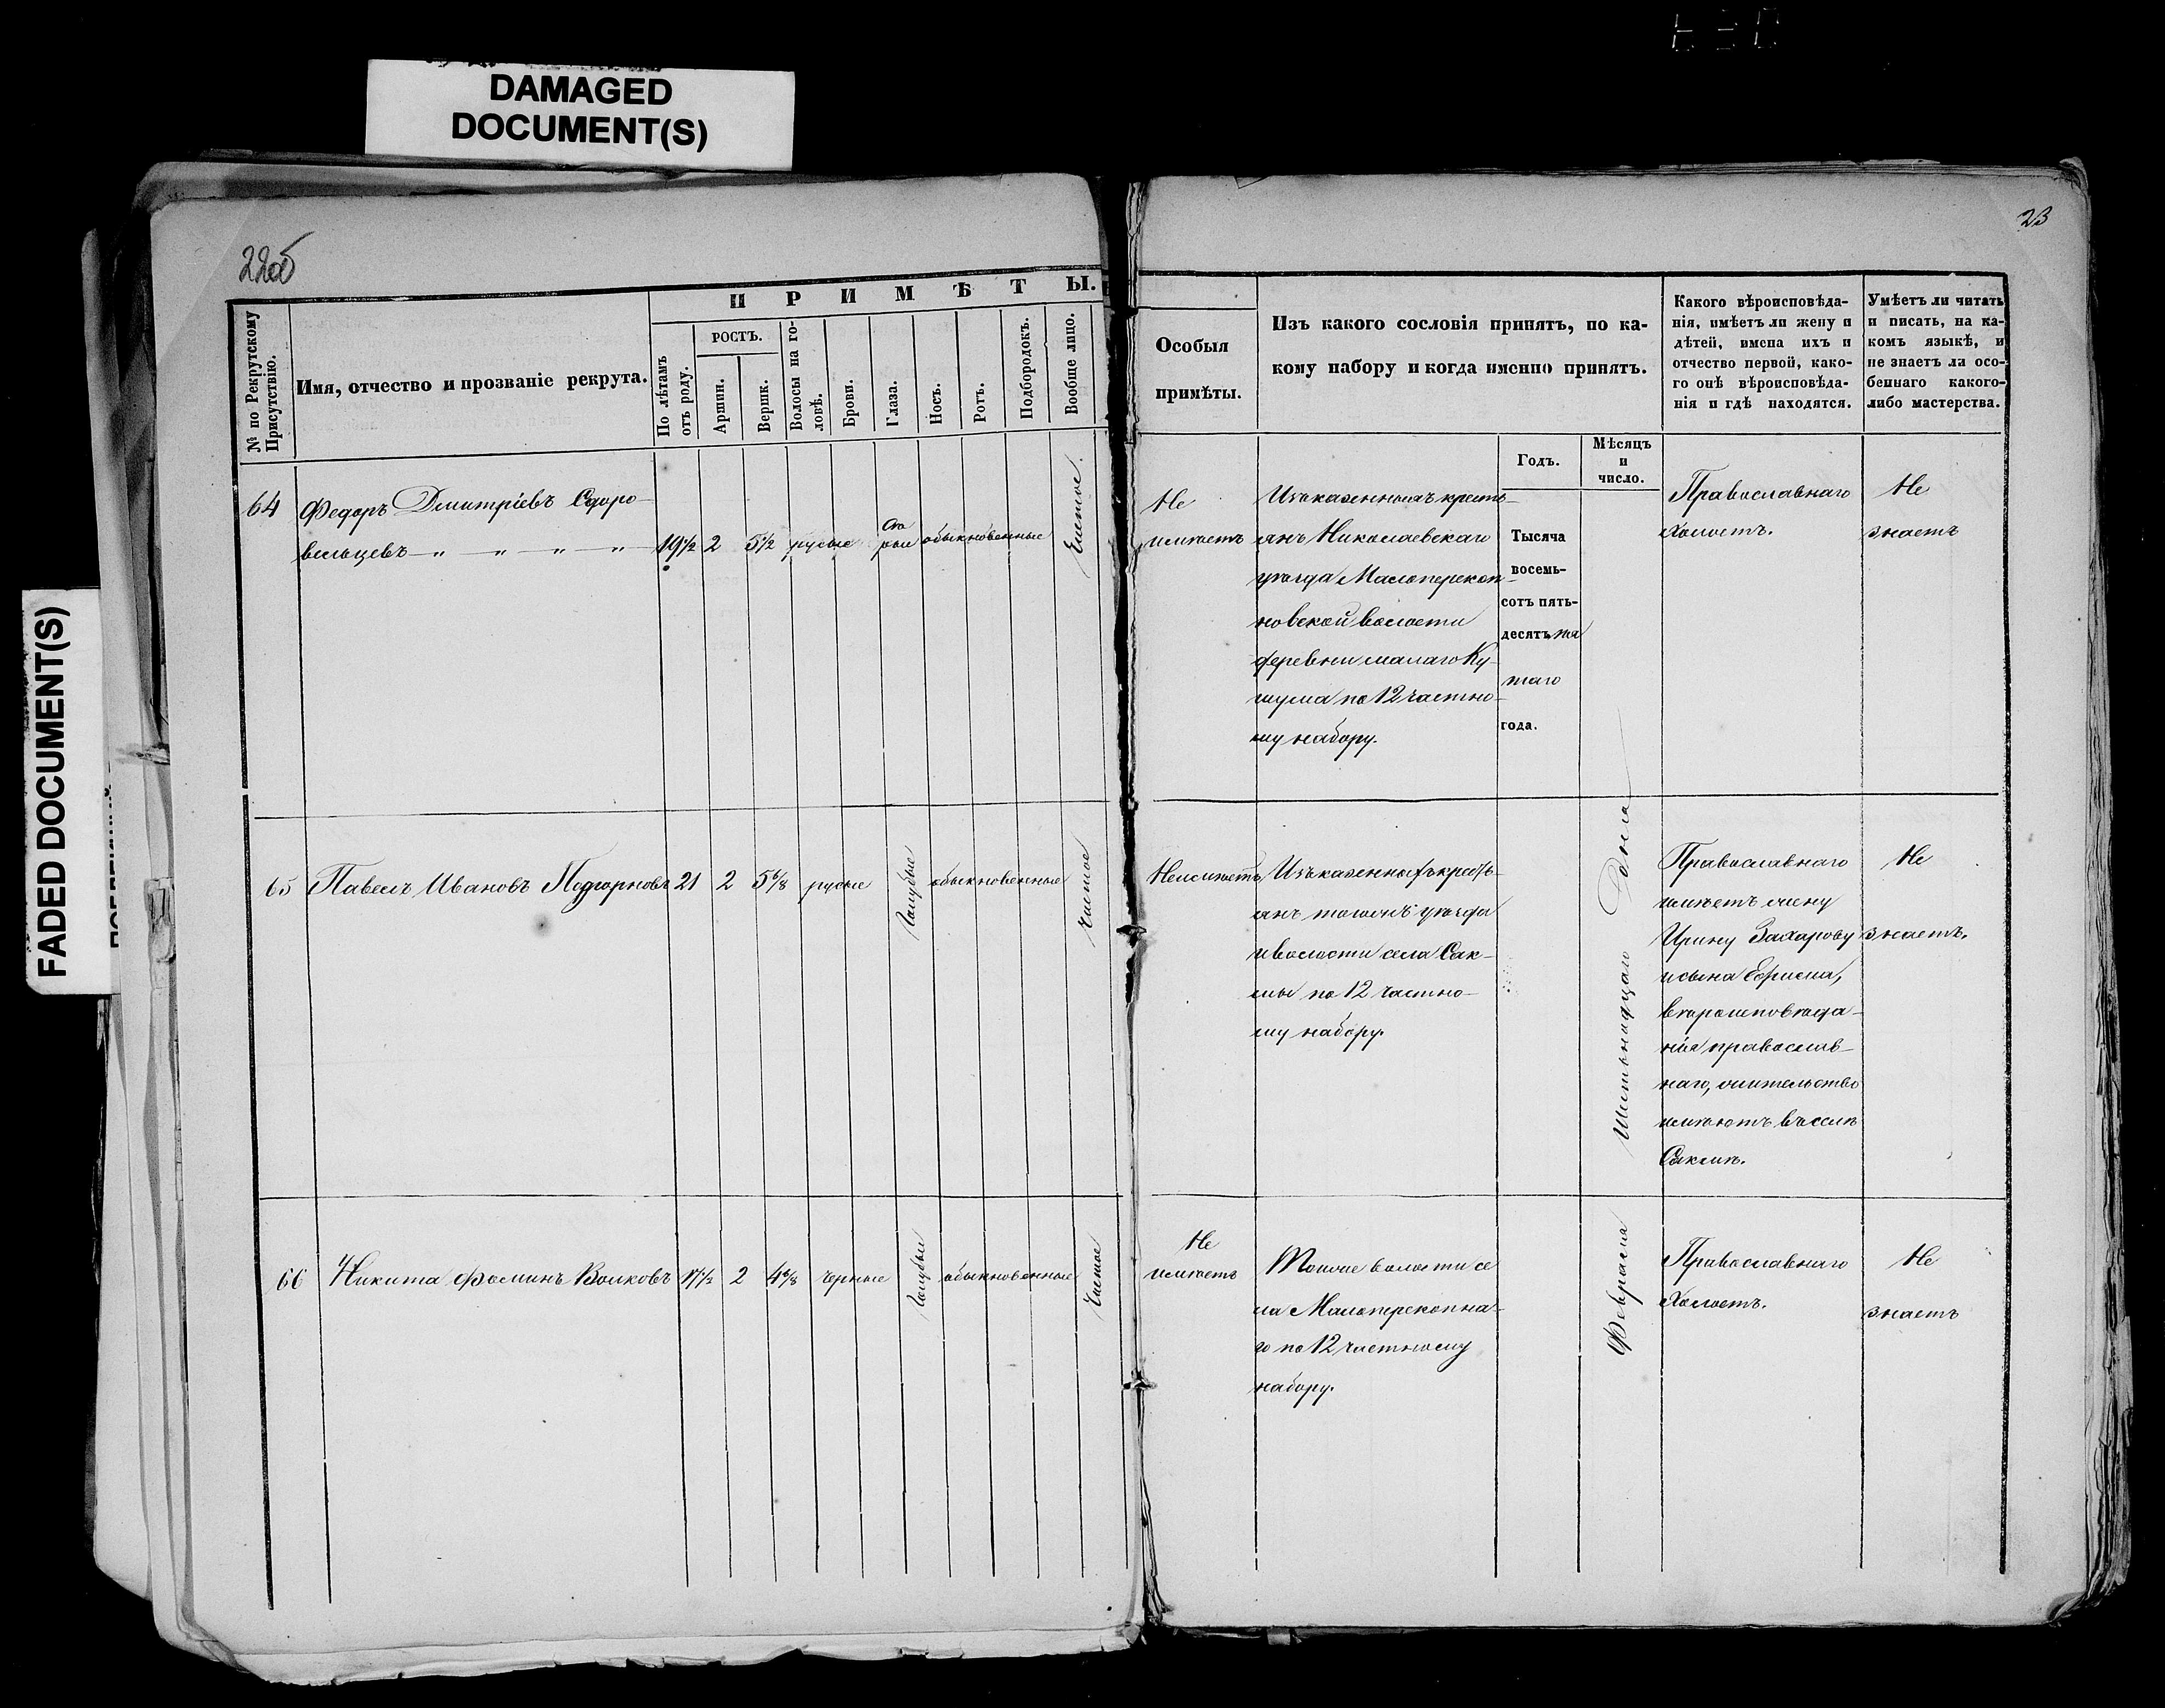 DAMAGED
DOCUMENT(S)
FADED DOCUMENT(S)
22об
23
ПРИМѢТЫ.
№ по Рекрутскому
Присутствію.
Имя, отчество и прозваніе рекрута.
По лѣтамъ
отъ роду.
РОСТЪ.
Аршин.
Вершк.
Волосы на го-
ловѣ.
Брови.
Глаза.
Носъ.
Ротъ.
Подбородокъ.
Вообще лицо.
Особыя
примѣты.
Изъ какого сословія принятъ, по ка-
кому набору и когда именно принятъ.
Годъ.
Мѣсяцъ
и
число.
Какого вѣроисповѣда-
нія, имѣетъ ли жену и
дѣтей, имена ихъ и
отчество первой, како-
го онѣ вѣроисповѣда-
нія и гдѣ находятся.
Умѣетъ ли читать
и писать, на ка-
комъ языкѣ, и
не знаетъ ли осо-
беннаго какого-
либо мастерства.
64
Федоръ Дмитріевъ Сдоро-
вельцевъ — „ — „ — „ — „ —
19½
2
5½
русые
обыкновенные
Чистое.
Не
имѣетъ
Изъ казенныхъ кресть-
янъ Николаевскаго
уѣзда Малоперекоп-
новской волости
деревни малаго Ку-
шума по 12 частно-
му набору.
Тысяча
восемь-
сотъ пять-
десятъ пя
таго
года.
Православнаго
холостъ.
Не
знаетъ
65
Павелъ Ивановъ Подгорновъ
21
2
5⁶/₈
русые
Голубые
обыкновенные
Чистое
Неимѣетъ
Изъ казенныхъ кресть-
янъ тогожъ уѣзда
и волости села Сак-
мы по 12 частно-
му набору.
Шестьнадцаго Дня
Православнаго
имѣетъ жену
Ирину Захарову
и сына Ефрема,
вѣроисповѣда-
нія православ-
наго, жительство
имѣютъ въ селѣ
Сакмѣ.
Не
знаетъ.
66
Никита Фоминъ Волковъ
17½
2
4⁶/₈
черные
Голубые
обыкновенные
Чистое
Не
имѣетъ
Тойже волости се
ла Малоперекопна-
го по 12 частному
набору.
Февраля
Православнаго
Холостъ.
Не
знаетъ